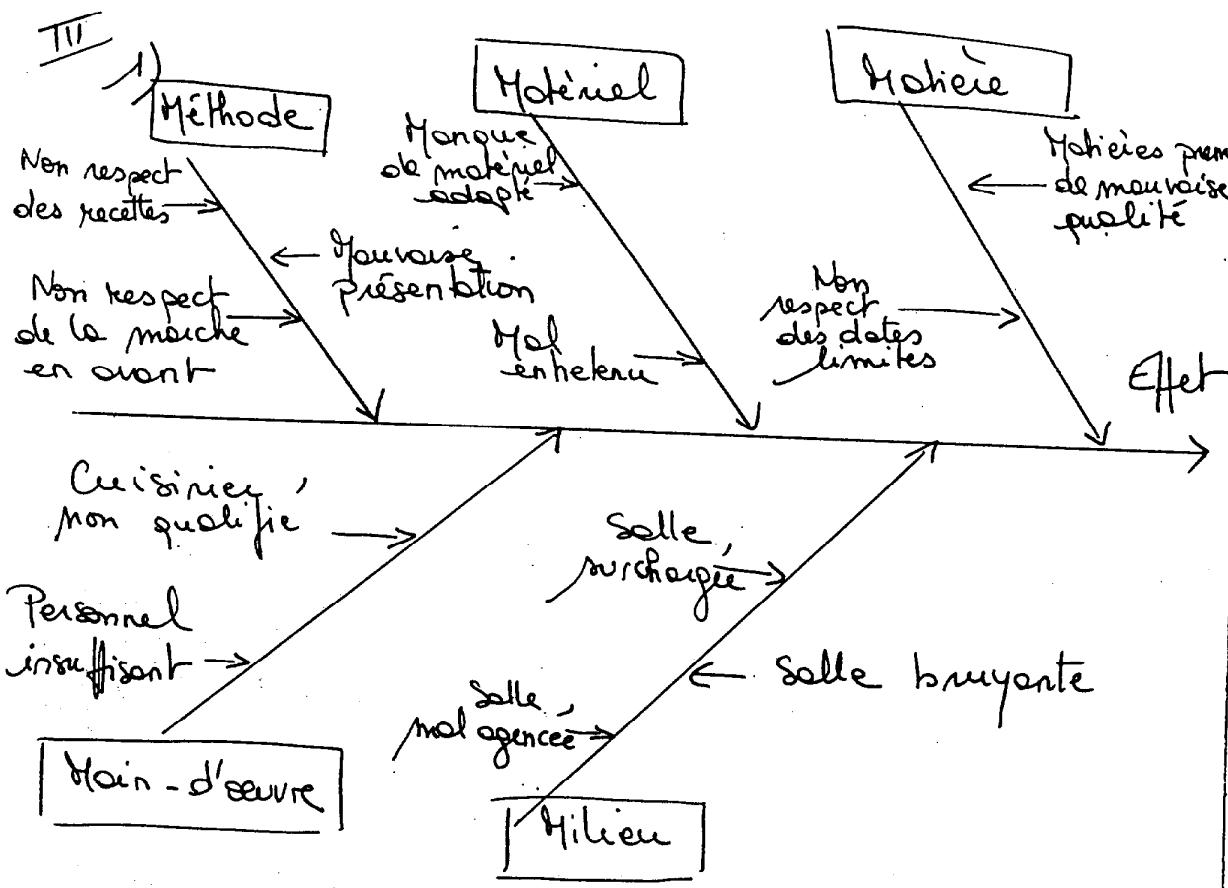 III
1)
Méthode
Matériel
Matière
Non respect
des recettes
Mauvaise
présentation
Non respect
de la marche
en avant
Manque
de matériel
adapté
Mal
entretenu
Matières prem
de mauvaise
qualité
Non
respect
des dates
limites
Effet
Cuisinier
non qualifié
Personnel
insuffisant
Main-d'œuvre
Salle
surchargée
Salle bruyante
Salle
mal agencée
Milieu